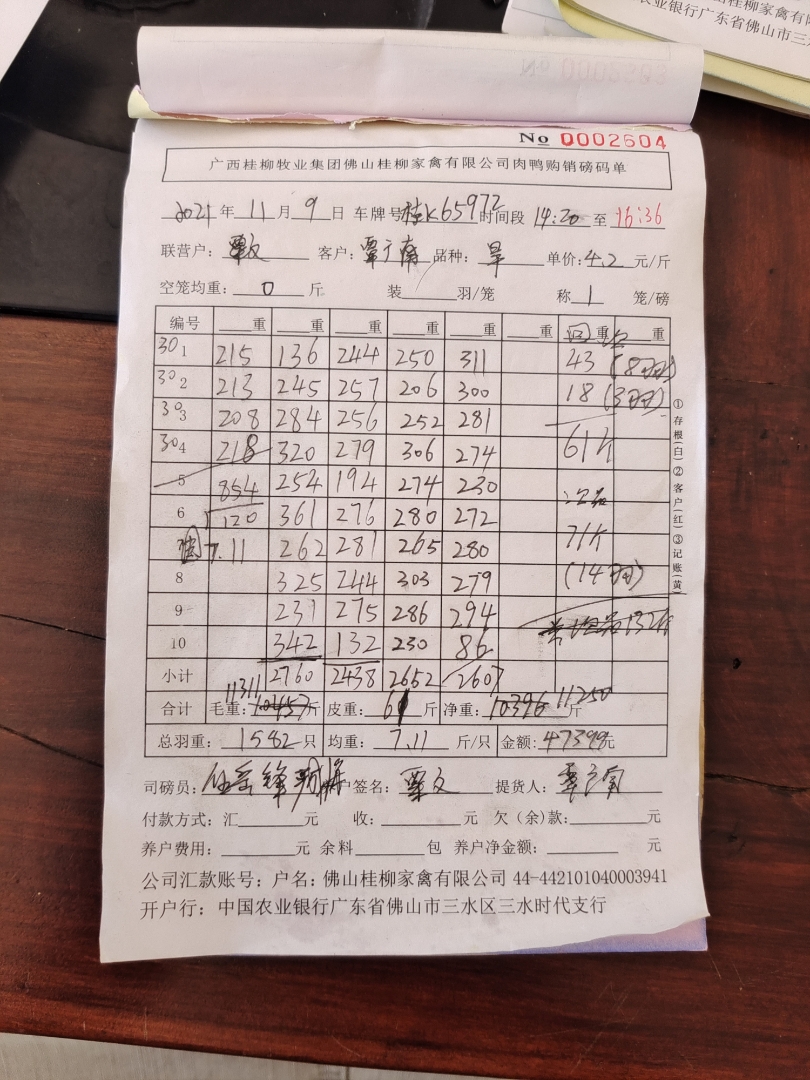 农业银行广东省佛山市三水
No 0002604
广西桂柳牧业集团佛山桂柳家禽有限公司肉鸭购销磅码单
2021 年 11 月 9 日 车牌号 桂K65972 时间段 14:20 至 16:36
联营户: 客户: 覃广南 品种: 单价: 4.2 元/斤
空笼均重: 0 斤 装 羽/笼 称 1 笼/磅
编号 重 重 重 重 重 重 回重 重
30 1 215 136 244 250 311 43 (8羽)
30 2 213 245 257 206 300 18 (3羽)
30 3 208 284 256 252 281
30 4 218 320 279 306 274 61斤
5 854 254 194 274 230 次品
6 120 361 276 280 272 71斤
7.11 262 281 265 280
8 325 244 303 279 (14羽)
9 231 275 286 294
10 342 132 230 86
小计 2760 2438 2652 2607
11311 11250
合计 毛重: 10457 斤 皮重: 61 斤 净重: 10396 斤
总羽重: 1582 只 均重: 7.11 斤/只 金额: 47399元
司磅员: 户签名: 覃文 提货人: 覃广南
付款方式: 汇 元 收: 元 欠(余)款: 元
养户费用: 元 余料 包 养户净金额: 元
公司汇款账号: 户名: 佛山桂柳家禽有限公司 44-442101040003941
开户行: 中国农业银行广东省佛山市三水区三水时代支行
①存根(白)②客户(红)③记账(黄)